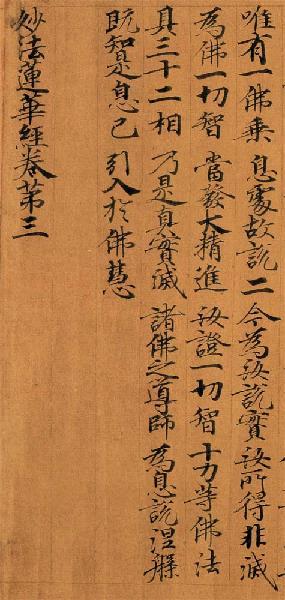 唯有一佛乗 息處故説二 今為汝説實 汝所得非滅
為佛一切智 當發大精進 汝證一切智 十力等佛法
具三十二相 乃是真實滅 諸佛之導師 為息説涅槃
既知是息已 引入於佛慧
妙法蓮華經卷第三